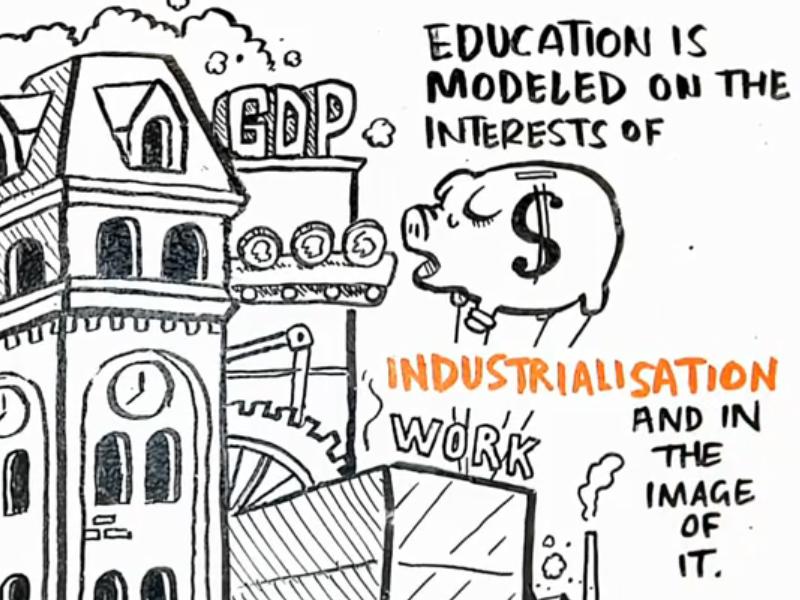 EDUCATION IS
MODELED ON THE
INTERESTS OF
GDP
$
INDUSTRIALISATION
WORK
AND IN
THE
IMAGE
OF
IT.